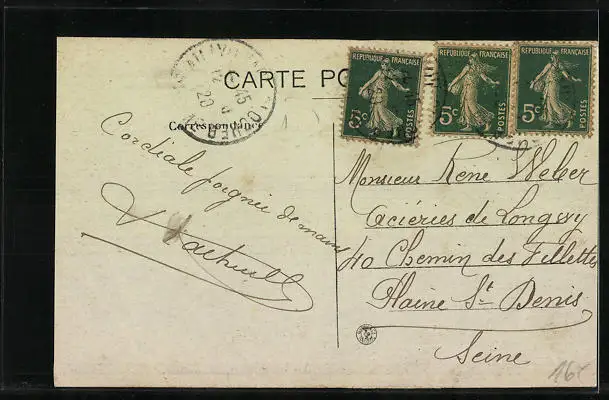 CARTE PO
REPUBLIQUE FRANÇAISE
5c
POSTES
REPUBLIQUE FRANÇAISE
5c
POSTES
REPUBLIQUE FRANÇAISE
5c
POSTES
Correspondance
Cordiale poignée de main
Monsieur René Weber
Aciéries de Longwy
40 Chemin des Fillettes
Plaine St Denis
Seine